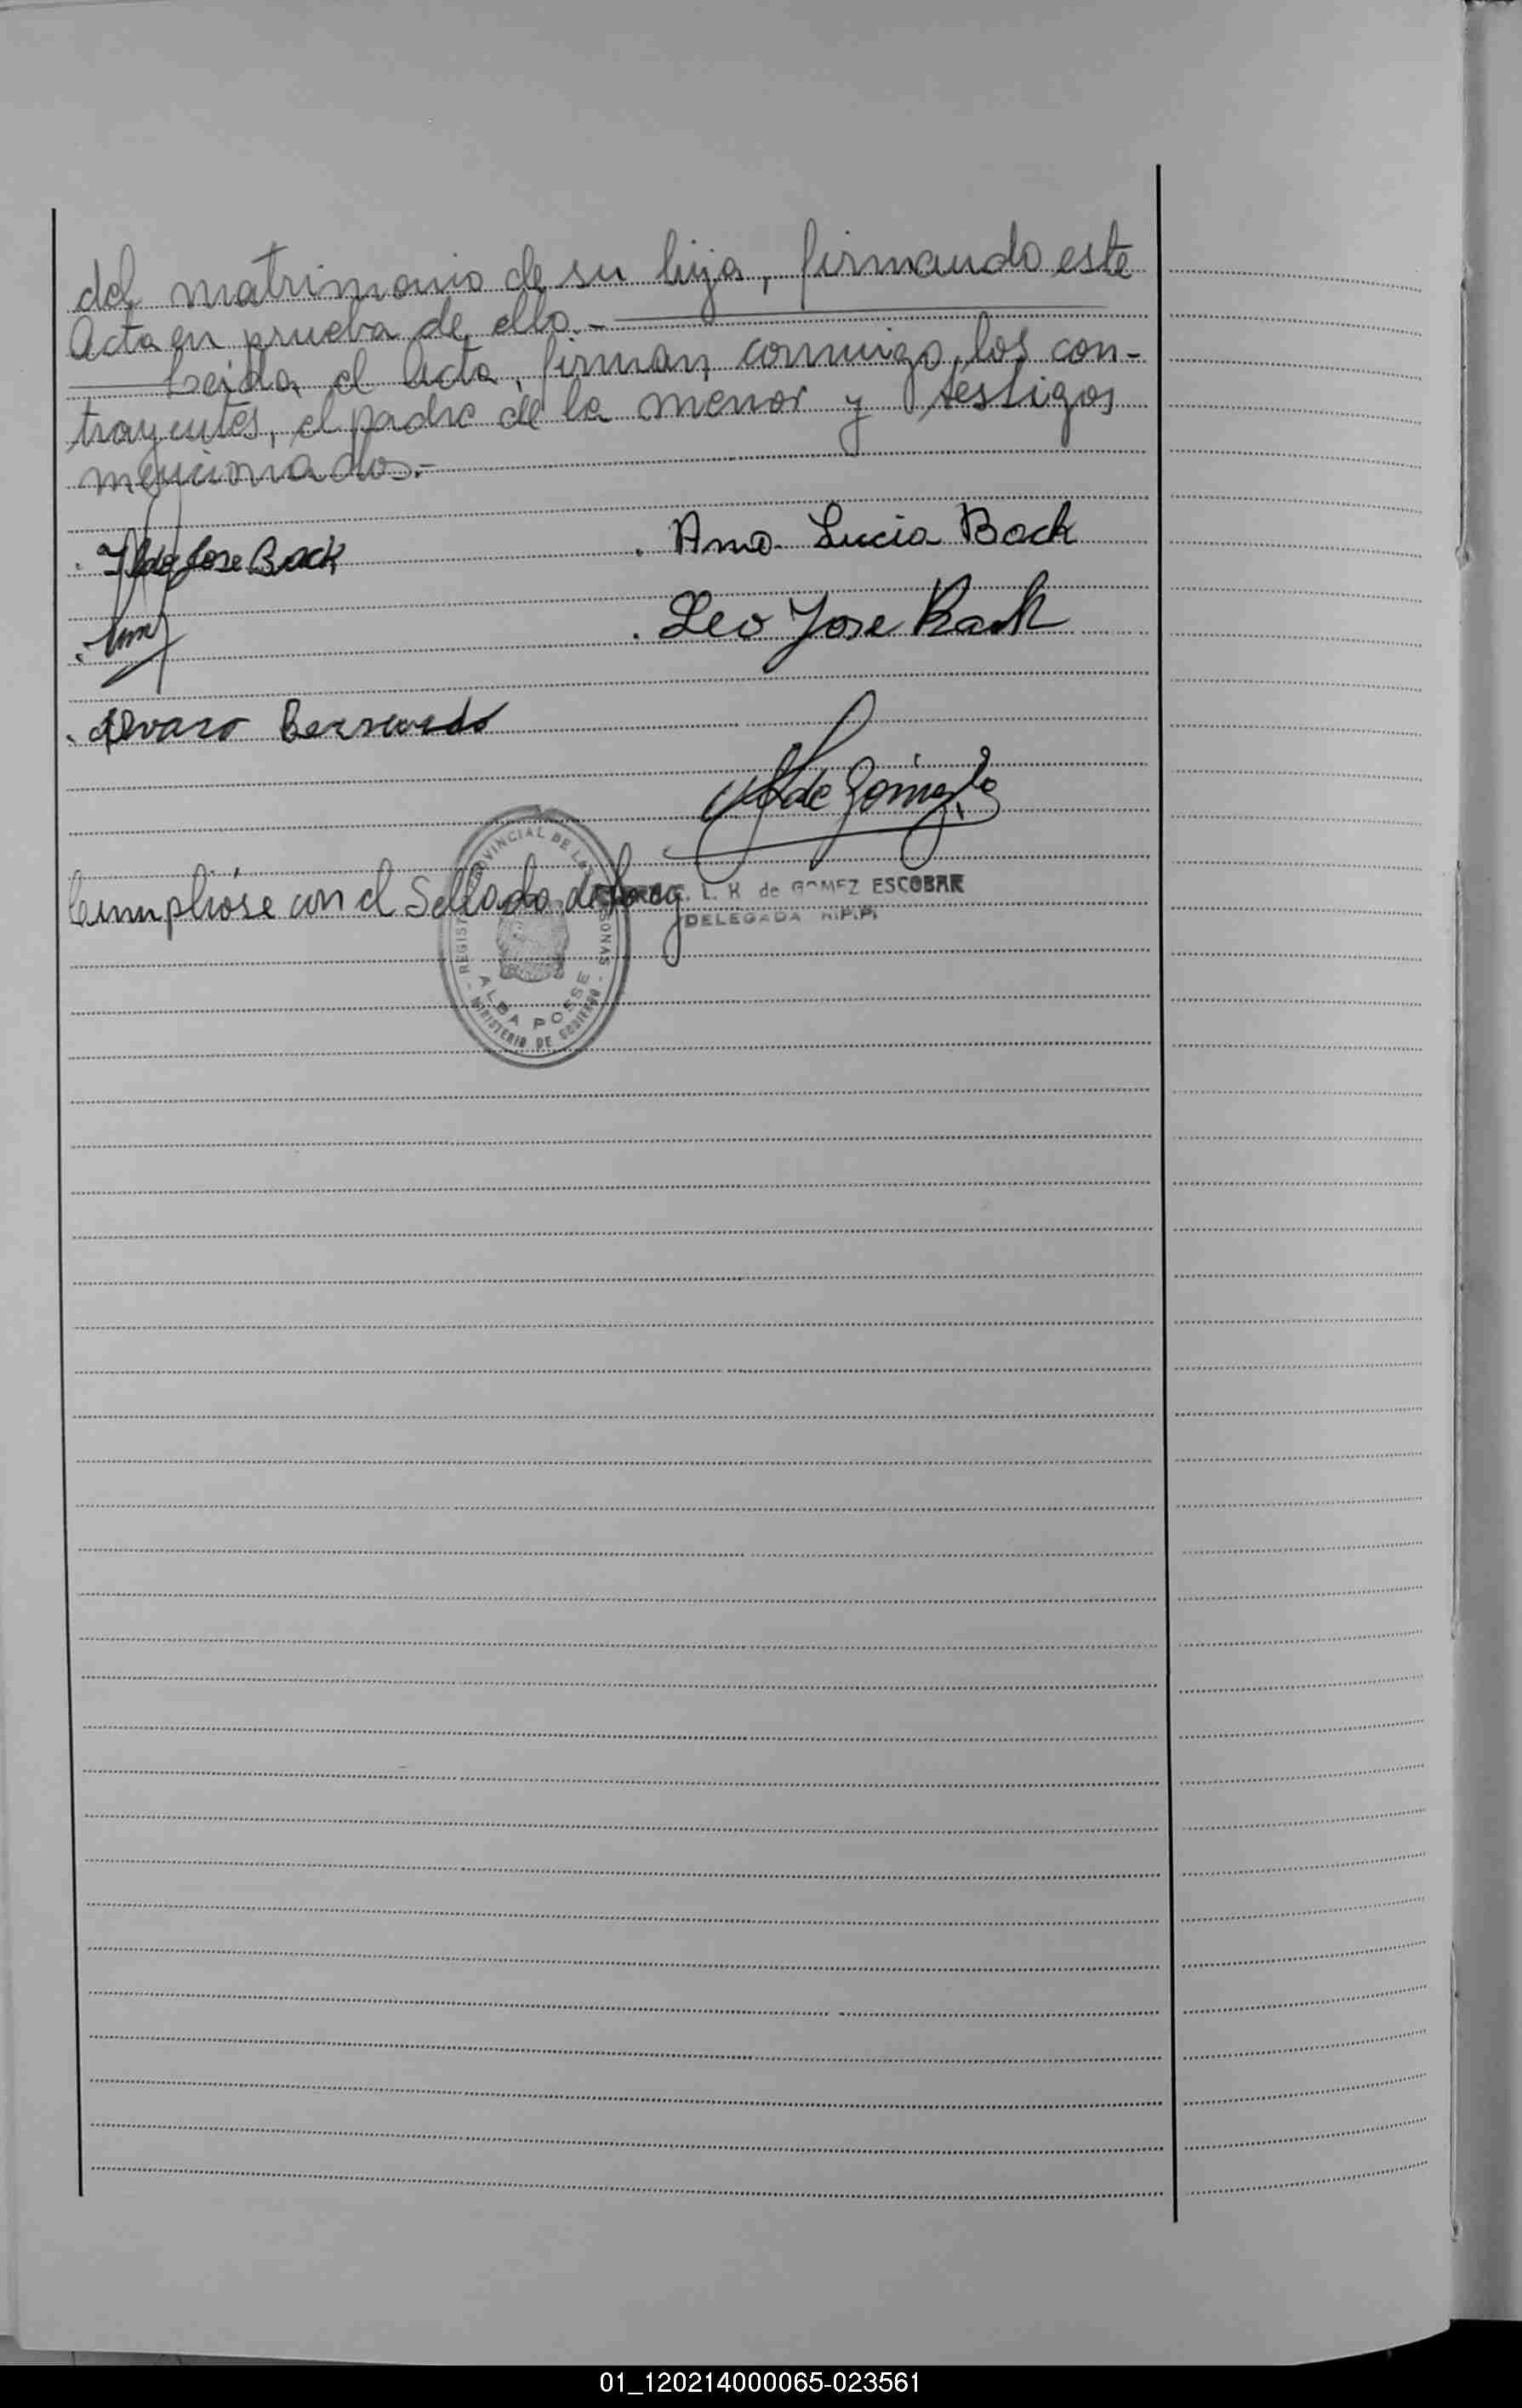 del matrimonio de su hija, firmando este
Acta en prueba de ello.-
Leida el Acta, firman conmigo, los con-
trayentes, el padre de la menor y testigos
mencionados.-
. Ildo Jose Back
. Ana Lucia Back
. Leo Jose Back
. Alvaro Bernardo
de Gomez
L. H de GOMEZ ESCOBAR
DELEGADA R.P.P.
Cumplióse con el Sellado de Ley
REGISTRO PROVINCIAL DE LAS PERSONAS
ALBA POSSE
- MINISTERIO DE GOBIERNO -
01_120214000065-023561